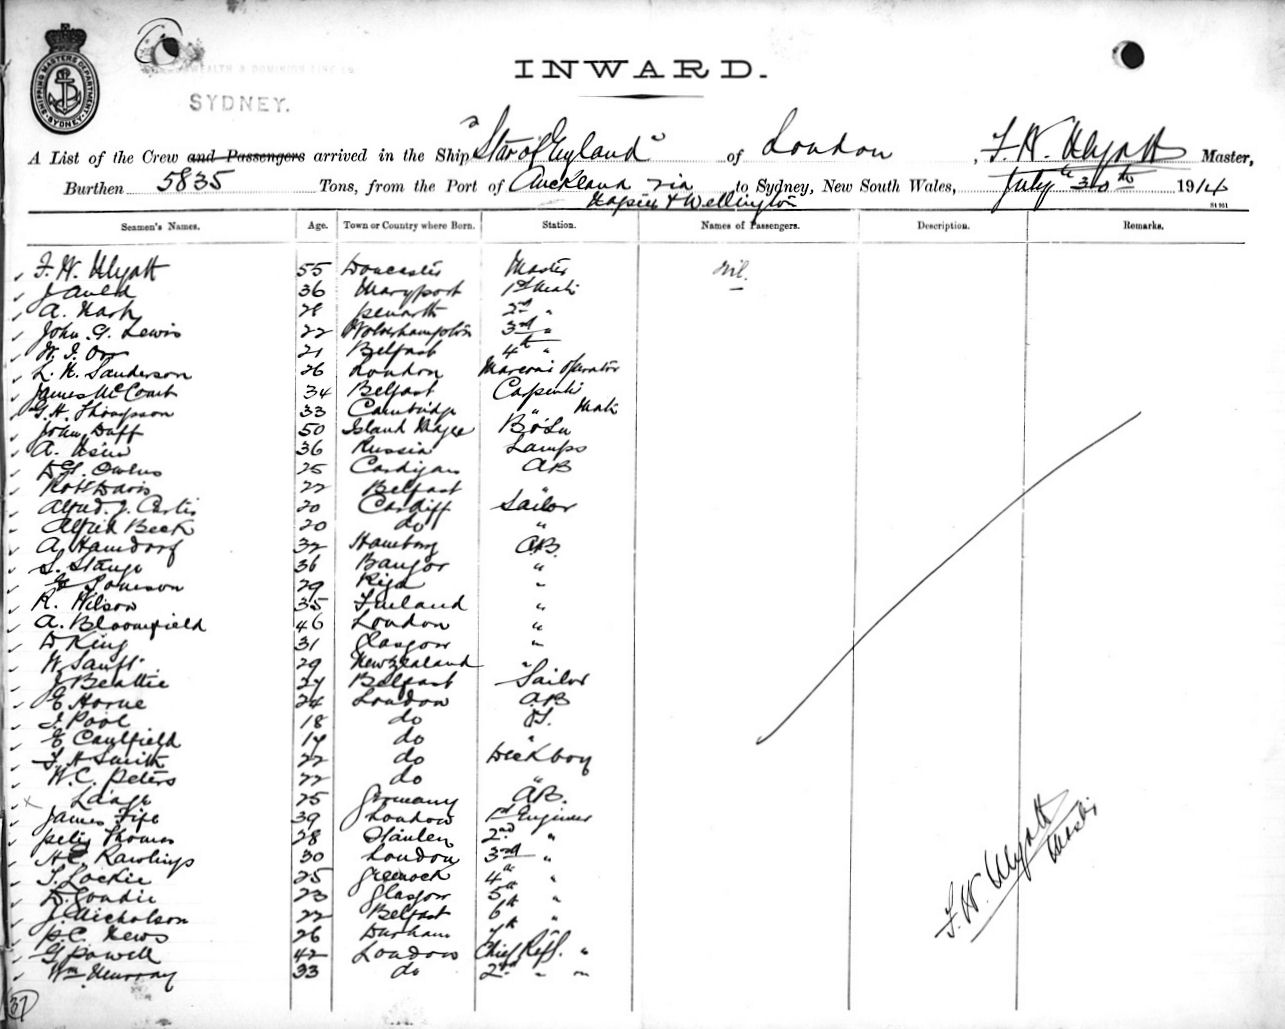 SHIPPING MASTERS DEPARTMENT SYDNEY
WEALTH & DOMINION LINE LD
SYDNEY.
INWARD.
A List of the Crew and Passengers arrived in the Ship "Star of England" of London, F. W. Wyatt Master,
Burthen 5835 Tons, from the Port of Auckland via to Sydney, New South Wales, July 30th 1914
Napier & Wellington
Seamen's Names. Age. Town or Country where Born. Station. Names of Passengers. Description. Remarks.
F. W. Wyatt 55 Doncaster Master nil.
J Auld 36 Maryport 1st Mate
A. Nash 28 Penarth 2nd "
John G. Lewis 22 Wolverhampton 3rd "
W. J. Orr 21 Belfast 4th "
L. N. Sanderson 26 London Marconi Operator
James McCourt 34 Belfast Carpenter
G. H. Thompson 33 Cambridge " Mate
John Duff 50 Island Magee Bo'sn
A. 36 Russia Lamps
Owens 25 Cardigan AB
Robt Davis 22 Belfast "
Alfred. J. Curtis 20 Cardiff Sailor
Alfred Beck 20 do "
A. Hamdorf 32 Hamburg A.B.
S. Stange 36 Bangor "
29 Riga "
R. Wilson 35 Finland "
A. Bloomfield 46 London "
D King 31 Glasgow "
W. 29 New Zealand "
J Beattie 27 Belfast Sailor
E Horne 24 London A.B
J. Pool 18 do O.S.
E Caulfield 17 do "
F. H Smith 22 do Deckboy
W. C. Peters 22 do "
x 25 Germany A.B.
James Fife 39 London 1st Engineer
Thomas 28 2nd "
Rawlings 30 London 3rd "
J. Lockie 25 Greenock 4th "
D. Goudie 23 Glasgow 5th "
J. Nicholson 22 Belfast 6th "
P. C. News 26 Durham 7th "
G Powell 42 London Chief Refg. "
Wm Murray 33 do 2nd " "
F. W. Wyatt
Master
37